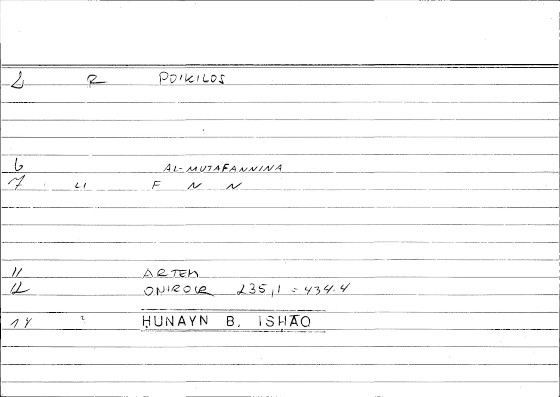 2 R POIKILOS
6 AL-MUTAFANNINA
7 LI F N N
11 ARTEM
12 ONIROCR 235,1 = 434.4
14 HUNAYN B. ISHAO